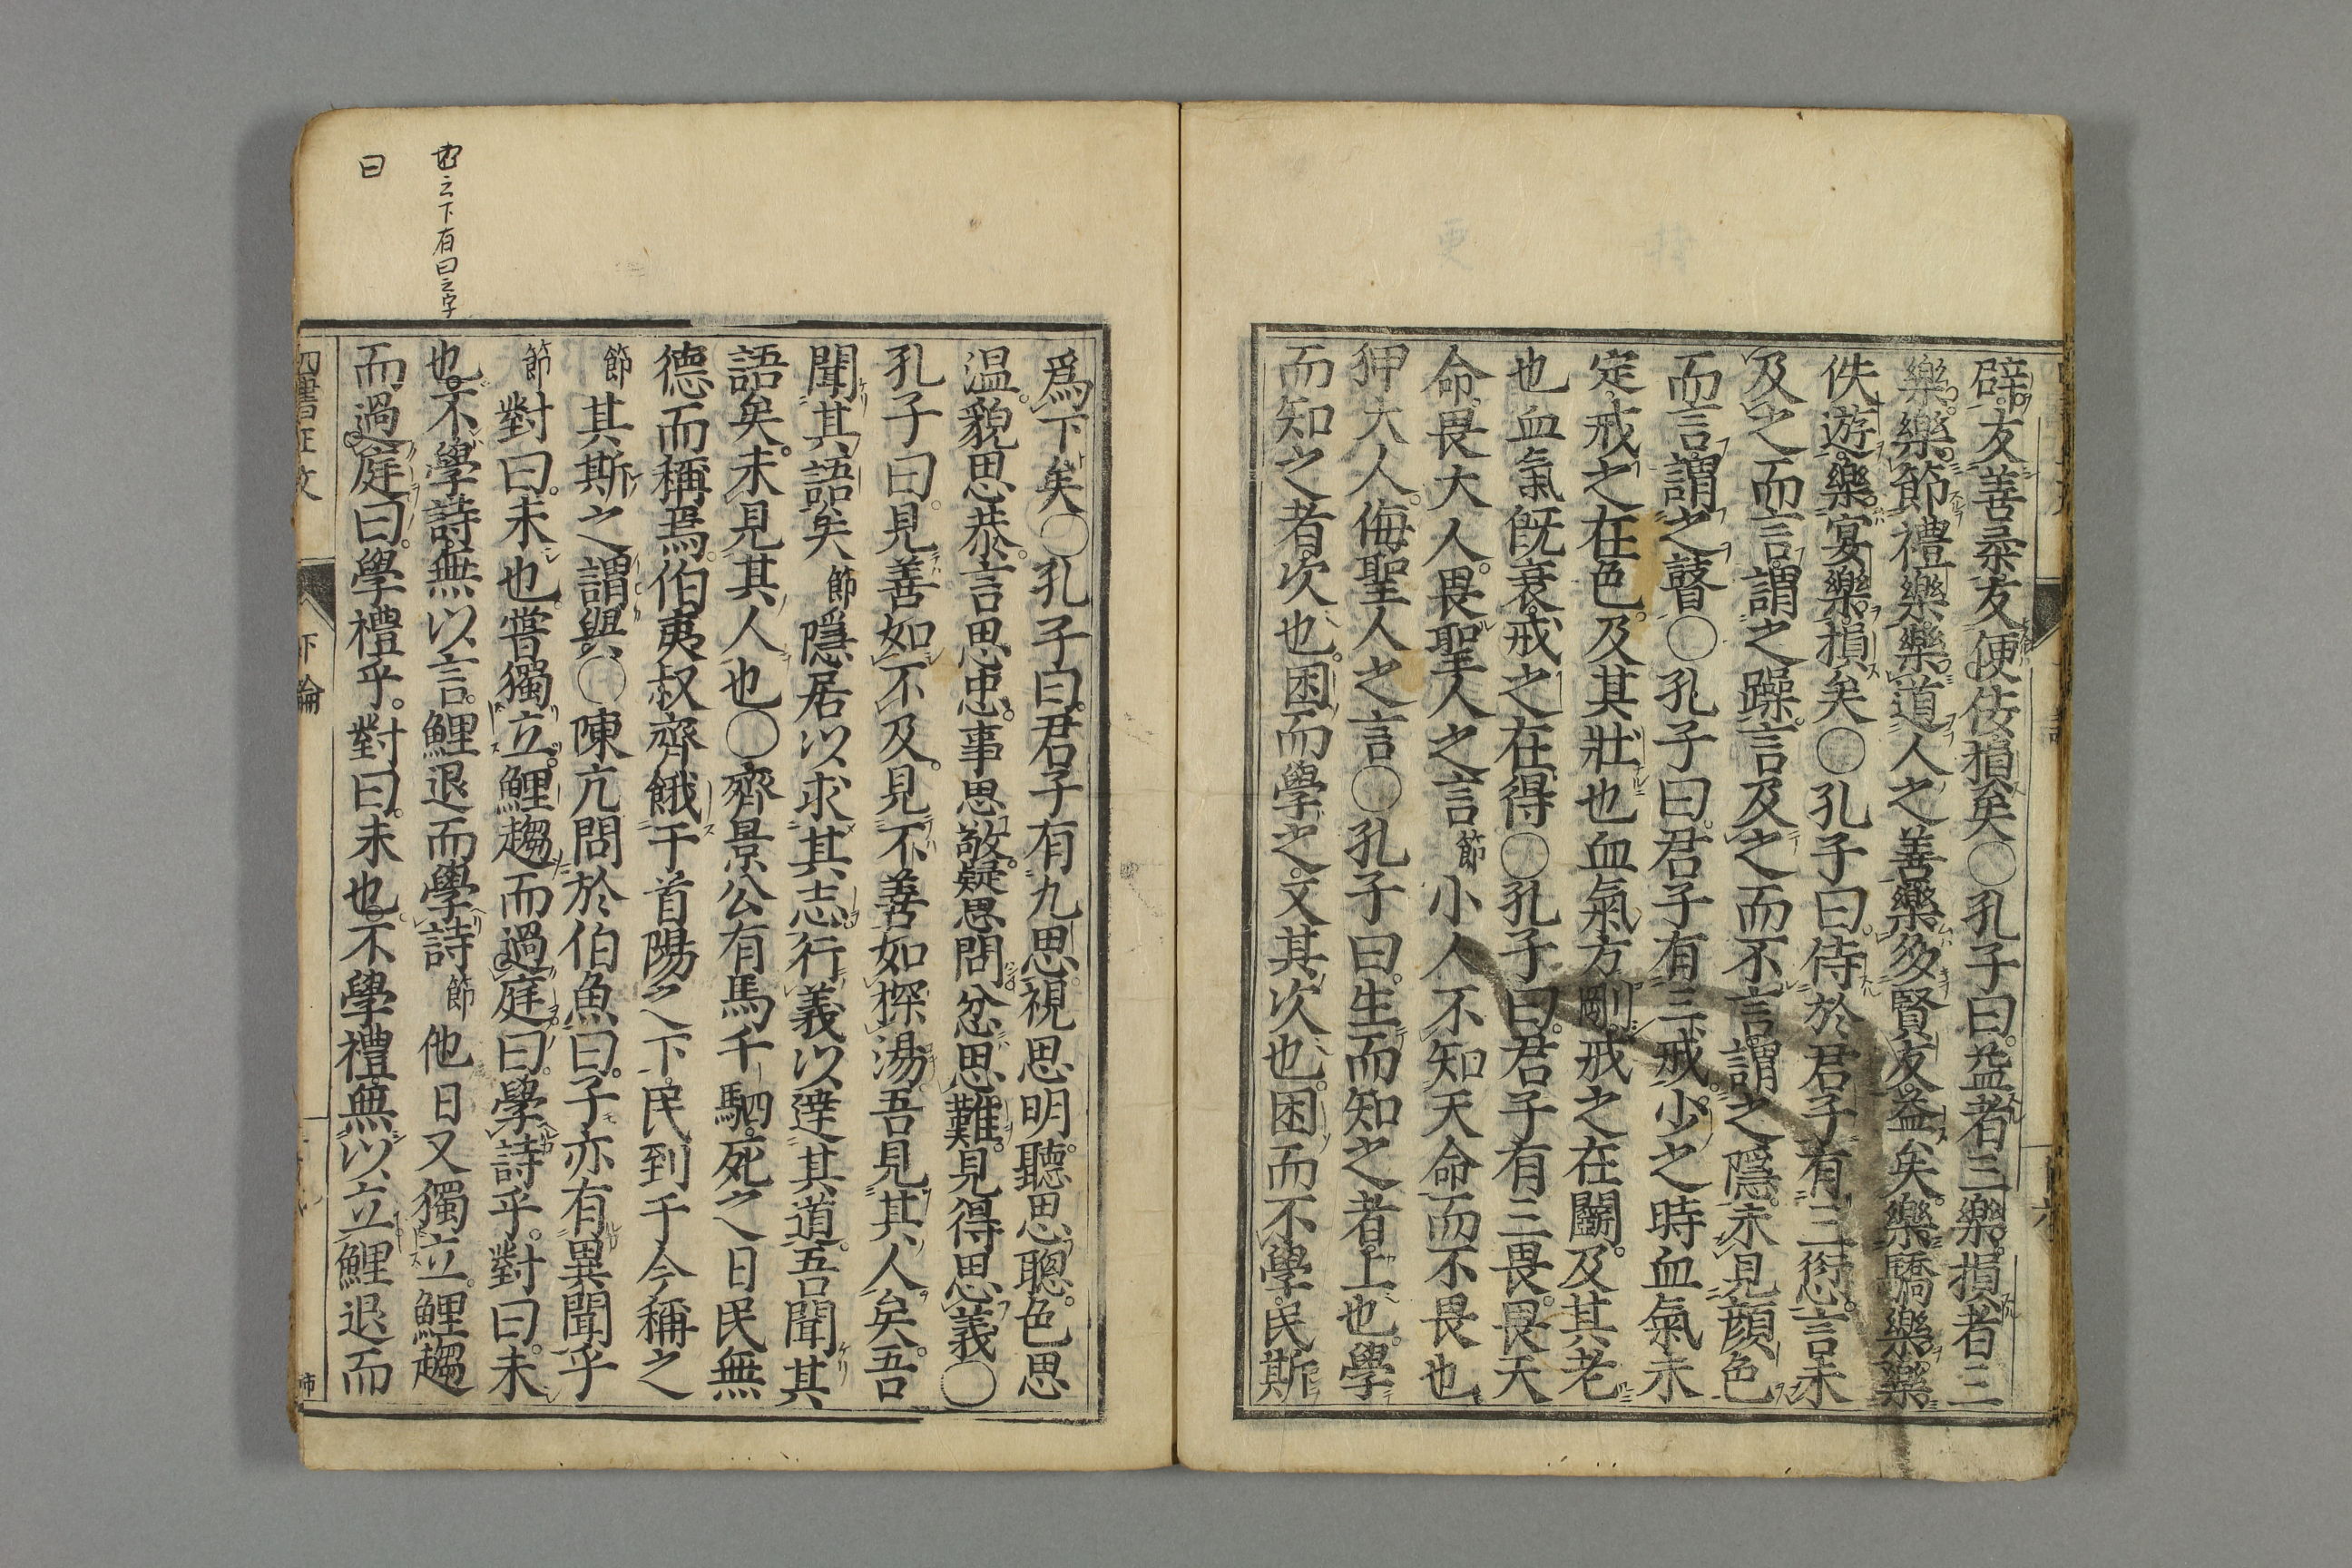 辟友善柔友便佞損矣○孔子曰益者三樂損者三
樂樂節禮樂樂道人之善樂多賢友益矣樂驕樂樂
佚遊樂宴樂損矣○孔子曰侍於君子有三愆言未
及之而言謂之躁言及之而不言謂之隱未見顏色
而言謂之瞽○孔子曰君子有三戒少之時血氣未
定戒之在色及其壯也血氣方剛戒之在鬭及其老
也血氣既衰戒之在得○孔子曰君子有三畏畏天
命畏大人畏聖人之言節小人不知天命而不畏也
狎大人侮聖人之言○孔子曰生而知之者上也學
而知之者次也困而學之又其次也困而不學民斯
爲下矣○孔子曰君子有九思視思明聽思聰色思
温貌思恭言思忠事思敬疑思問忿思難見得思義○
孔子曰見善如不及見不善如探湯吾見其人矣吾
聞其語矣節隱居以求其志行義以達其道吾聞其
語矣未見其人也○齊景公有馬千駟死之日民無
德而稱焉伯夷叔齊餓于首陽之下民到于今稱之
節其斯之謂與○陳亢問於伯魚曰子亦有異聞乎
節對曰未也嘗獨立鯉趨而過庭曰學詩乎對曰未
也不學詩無以言鯉退而學詩節他日又獨立鯉趨
而過庭曰學禮乎對曰未也不學禮無以立鯉退而
也之下有曰之字
曰
下論